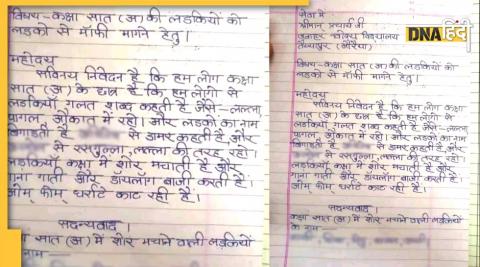 DNA हिंदी
विषय- कक्षा सात (अ) की लडकियों को
लडको से माँफी मागने हेतु।
महोदय
सविनय निवेदन है कि हम लोग कक्षा
सात (अ) के छात्र है कि हम लोगो से
लडकियाँ गलत शब्द कहती है जैसे - लल्ला,
पागल, औकात में रहो। और लडको का नाम
बिगाडती है से डामर कहती है, और
से रसगुल्ला, लल्ला की तरह रहो।
लडकियाँ कक्षा में शोर मचाती है और
गाना गाती और डॉयलॉग बाजी करती है।
ओम् फोम् धर्राटे काट रही है।
सदन्यवाद।
सात (अ) में शोर मचाने वाली लडकियों
नाम
सेवा में
श्रीमान प्रचार्य जी
जवाहर नवोदय विद्यालय
तैय्यापुर (औरैया)
विषय- कक्षा सात (अ) की लडकियों को
लडको से माँफी मागने हेतु।
महोदय
सविनय निवेदन है कि हम लोग कक्षा
सात (अ) के छात्र है कि हम लोगो से
लडकियाँ गलत शब्द कहती है जैसे - लल्ला,
पागल, औकात में रहो। और लडको का नाम
बिगाडती है से डामर कहती है, और
से रसगुल्ला, लल्ला की तरह रहो।
लडकियाँ कक्षा में शोर मचाती है और
गाना गाती और डॉयलॉग बाजी करती है।
ओम् फोम् धर्राटे काट रही है।
सदन्यवाद।
कक्षा सात (अ) में शोर मचाने वाली लडकियों
के नाम